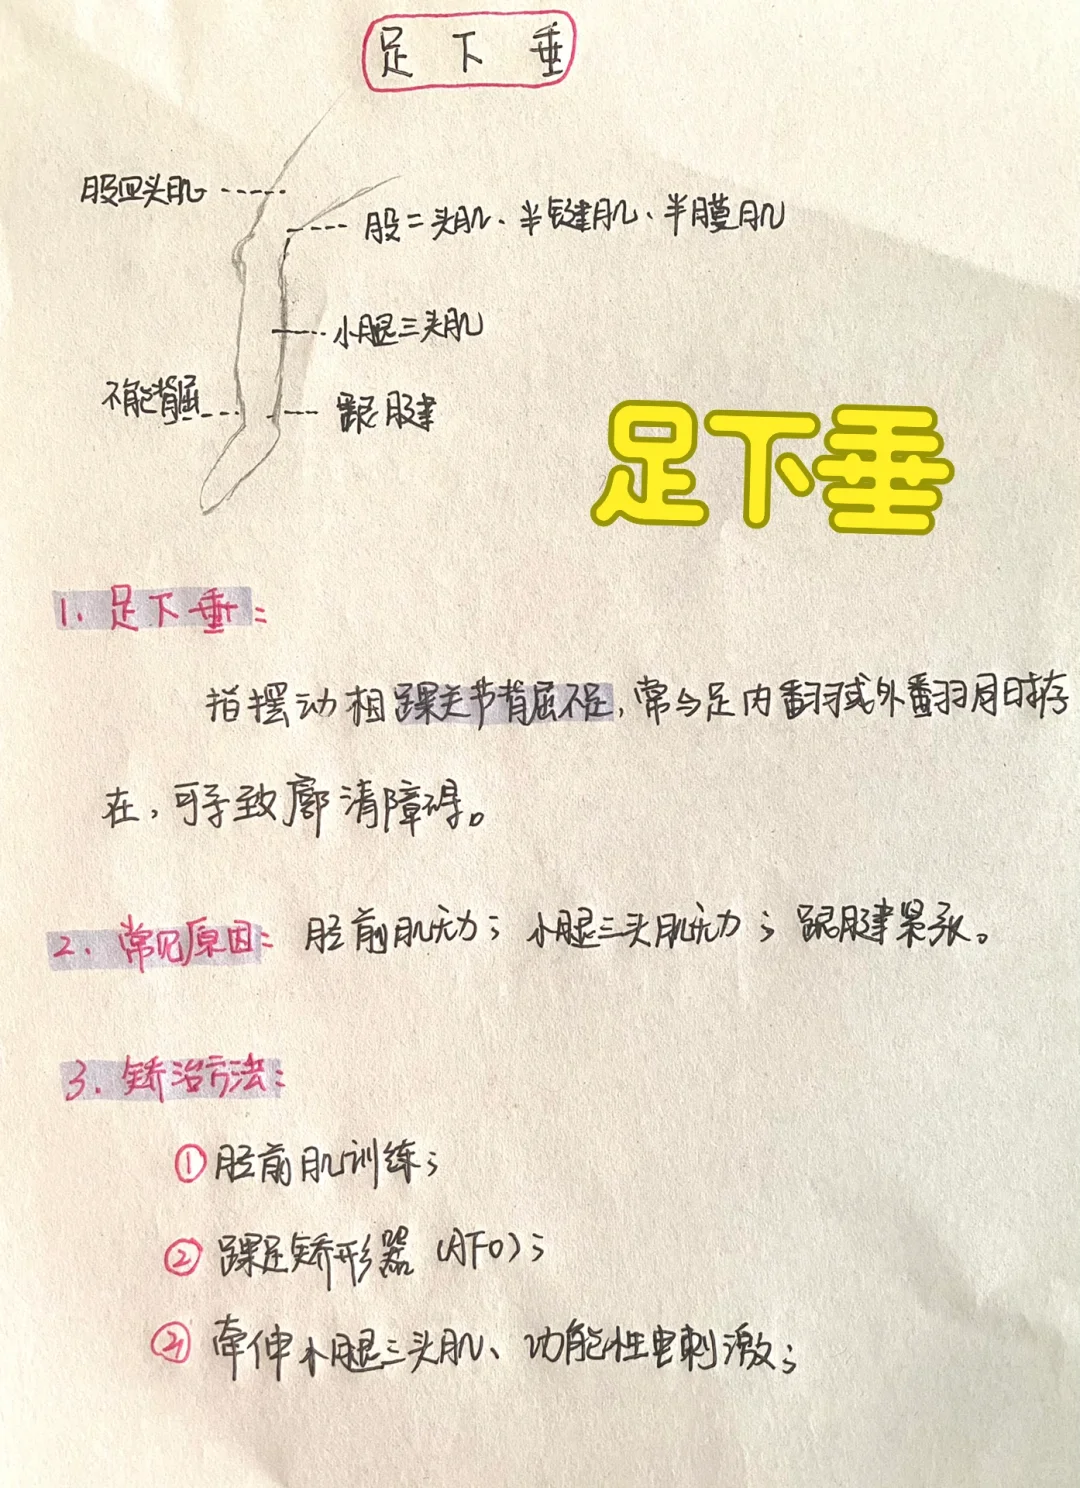 足下垂
股四头肌
股二头肌、半键肌、半膜肌
小腿三头肌
不能背屈
跟腱
足下垂
1.足下垂:
指摆动相踝关节背屈不足,常与足内翻或外翻同时存
在,可导致廓清障碍。
2.常见原因:胫前肌无力;小腿三头肌无力;跟腱紧张。
3.矫治方法:
①胫前肌训练;
②踝足矫形器(AFO);
③牵伸小腿三头肌、功能性电刺激;